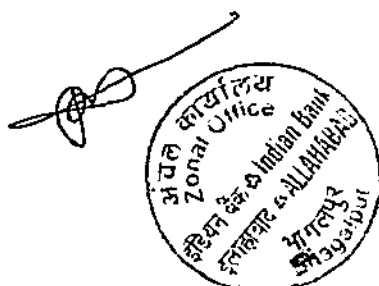 अंचल कार्यालय
Zonal Office
इंडियन बैंक Indian Bank
इलाहाबाद ALLAHABAD
भागलपुर
Bhagalpur